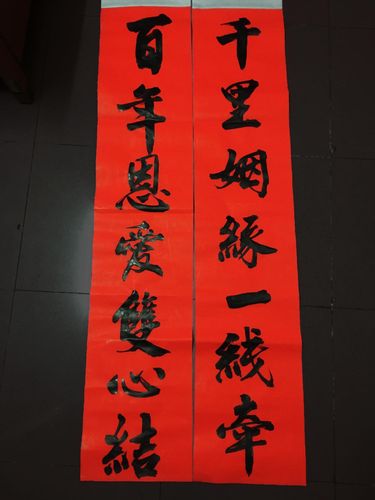 千里姻緣一綫牽
百年恩愛雙心結